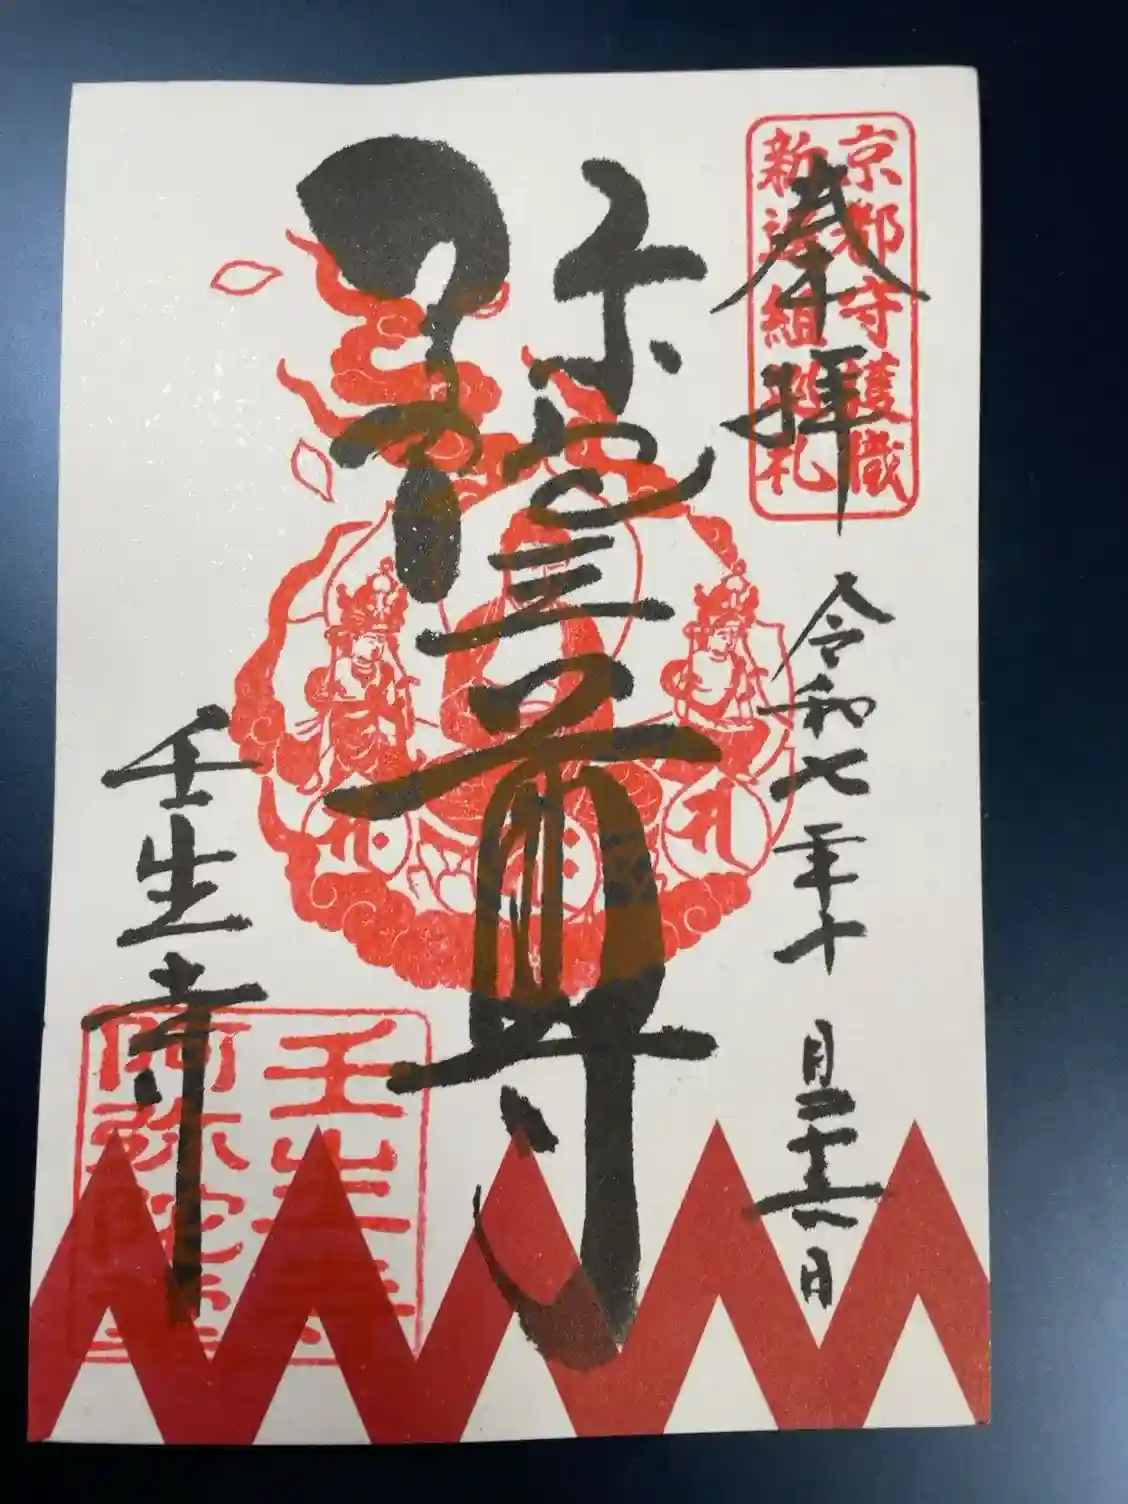 奉拝
京都守護職
新選組巡札
令和七年十月二十六日
弥陀三尊
壬生寺
壬生寺
阿弥陀堂